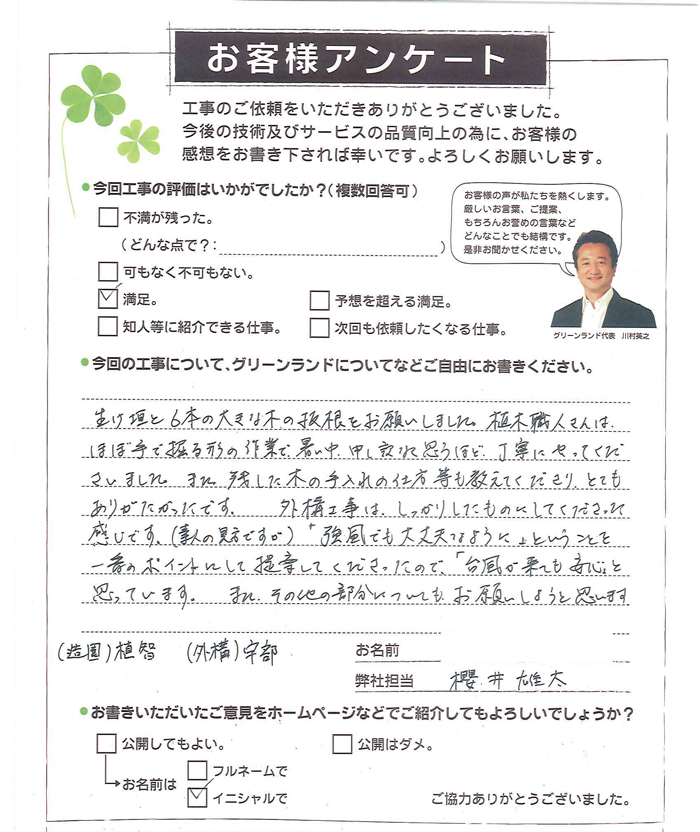 お客様アンケート
工事のご依頼をいただきありがとうございました。
今後の技術及びサービスの品質向上の為に、お客様の
感想をお書き下されば幸いです。よろしくお願いします。
●今回工事の評価はいかがでしたか？(複数回答可)
不満が残った。
(どんな点で？: )
可もなく不可もない。
満足。
予想を超える満足。
知人等に紹介できる仕事。
次回も依頼したくなる仕事。
お客様の声が私たちを熱くします。
厳しいお言葉、ご提案、
もちろんお誉めの言葉など
どんなことでも結構です。
是非お聞かせください。
グリーンランド代表 川村英之
●今回の工事について、グリーンランドについてなどご自由にお書きください。
生け垣と6本の大きな木の抜根をお願いしました。植木職人さんは、
ほぼ手で掘る形の作業で、暑い中、申し訳なく思うほど、丁寧にやってくだ
さいました。また、残した木の手入れの仕方等も教えてくださり、とても
ありがたかったです。 外構工事は、しっかりしたものにしてくださった
感じです。(素人の見方ですが)「強風でも大丈夫なように」ということを
一番のポイントにして提案してくださったので、「台風が来ても安心」と
思っています。 また、その他の部分についても、お願いしようと思います
(造園)植智 (外構)宇部
お名前
弊社担当 櫻井 雄太
●お書きいただいたご意見をホームページなどでご紹介してもよろしいでしょうか？
公開してもよい。
公開はダメ。
お名前は
フルネームで
イニシャルで
ご協力ありがとうございました。